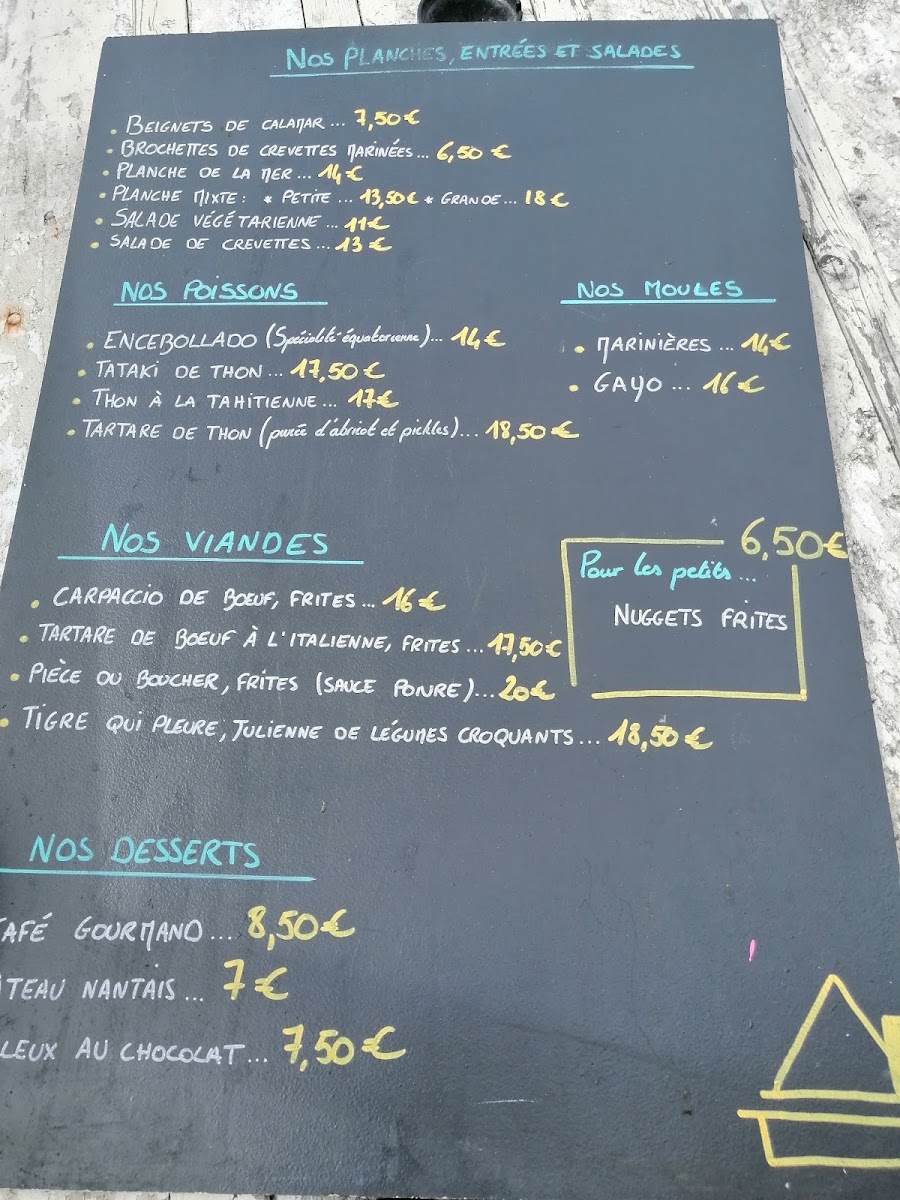 NOS PLANCHES, ENTRÉES ET SALADES
• BEIGNETS DE CALAMAR... 7,50€
• BROCHETTES DE CREVETTES MARINÉES... 6,50 €
• PLANCHE DE LA MER... 14€
• PLANCHE MIXTE: * PETITE... 13,50€ * GRANDE... 18€
• SALADE VÉGÉTARIENNE... 11€
• SALADE DE CREVETTES... 13€
NOS POISSONS
• ENCEBOLLADO (Spécialité équatorienne)... 14€
• TATAKI DE THON... 17,50€
• THON À LA TAHITIENNE... 17€
• TARTARE DE THON (purée d'abricot et pickles)... 18,50€
NOS MOULES
• MARINIÈRES... 14€
• GAYO... 16€
NOS VIANDES
• CARPACCIO DE BOEUF, FRITES... 16€
• TARTARE DE BOEUF À L'ITALIENNE, FRITES... 17,50€
• PIÈCE DU BOUCHER, FRITES (SAUCE POIVRE)... 20€
• TIGRE QUI PLEURE, JULIENNE DE LÉGUMES CROQUANTS... 18,50€
6,50€
Pour les petits...
NUGGETS FRITES
NOS DESSERTS
CAFÉ GOURMAND... 8,50€
ÂTEAU NANTAIS... 7€
LEUX AU CHOCOLAT... 7,50€